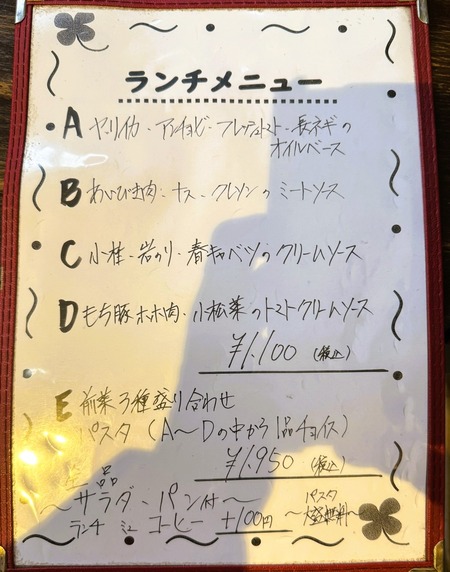 ランチメニュー
A ヤリイカ・アンチョビ・フレッシュトマト・長ネギの
オイルベース
B あいびき肉・ナス・クレソンのミートソース
C 小柱・岩のり・春キャベツのクリームソース
D もち豚ホホ肉・小松菜のトマトクリームソース
¥1,100 (税込)
E 前菜3種盛り合わせ
パスタ (A〜Dの中から1品チョイス)
¥1,950 (税込)
全品
〜サラダ・パン付〜
パスタ
〜大盛無料〜
ランチ コーヒー +100円